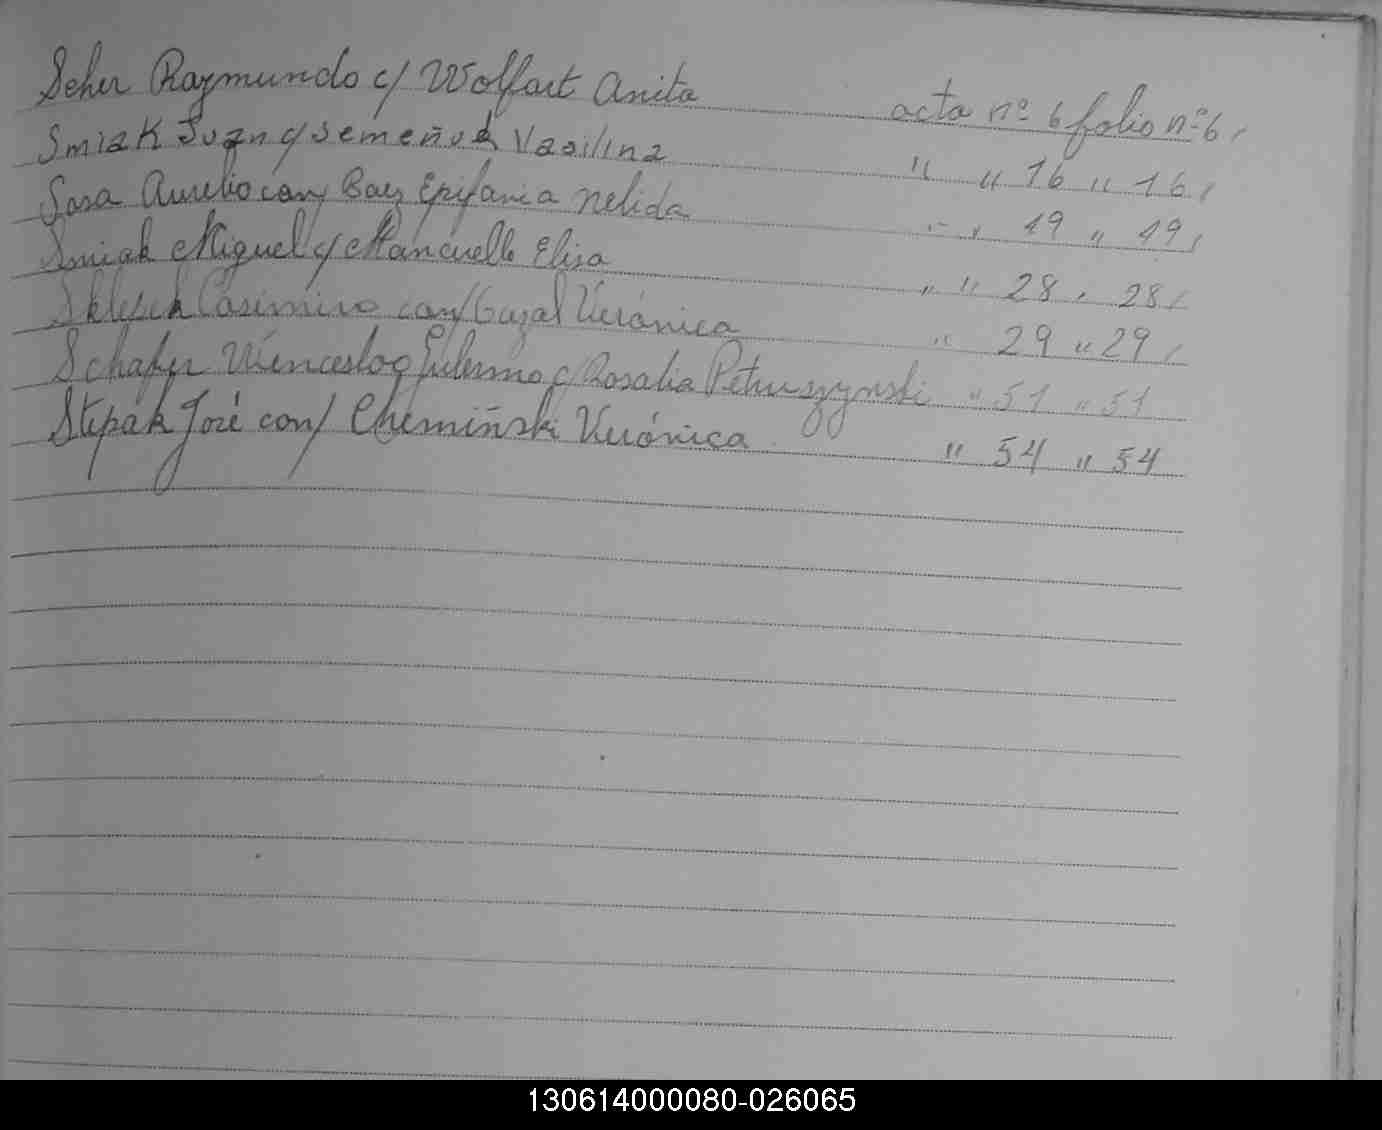 Scher Raymundo c/ Wolfart Anita acta nº 6 folio nº 6
Smiak Juan c/ Semeñuk Vasilina " " 16 " 16
Sosa Aurelio con/ Baez Epifania Nelida " " 19 " 19
Smiak Miguel c/ Mancuello Elisa " " 28 " 28
Casimiro con/ Guzal Verónica " 29 " 29
Schafer Wenceslao c/ Rosalia Petruszynski " 51 " 51
Stepak José con/ Chemiñski Verónica " 54 " 54
130614000080-026065